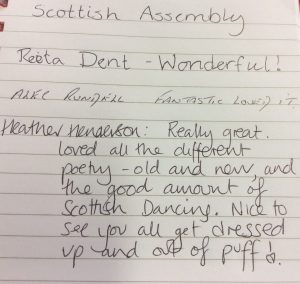 Scottish Assembly
Reeta Dent - Wonderful!
ALEC RUNDELL FANTASTIC LOVED IT.
Heather Henderson: Really great.
loved all the different
poetry - old and new, and
the good amount of
Scottish Dancing. Nice to
see you all get dressed
up and out of puff!